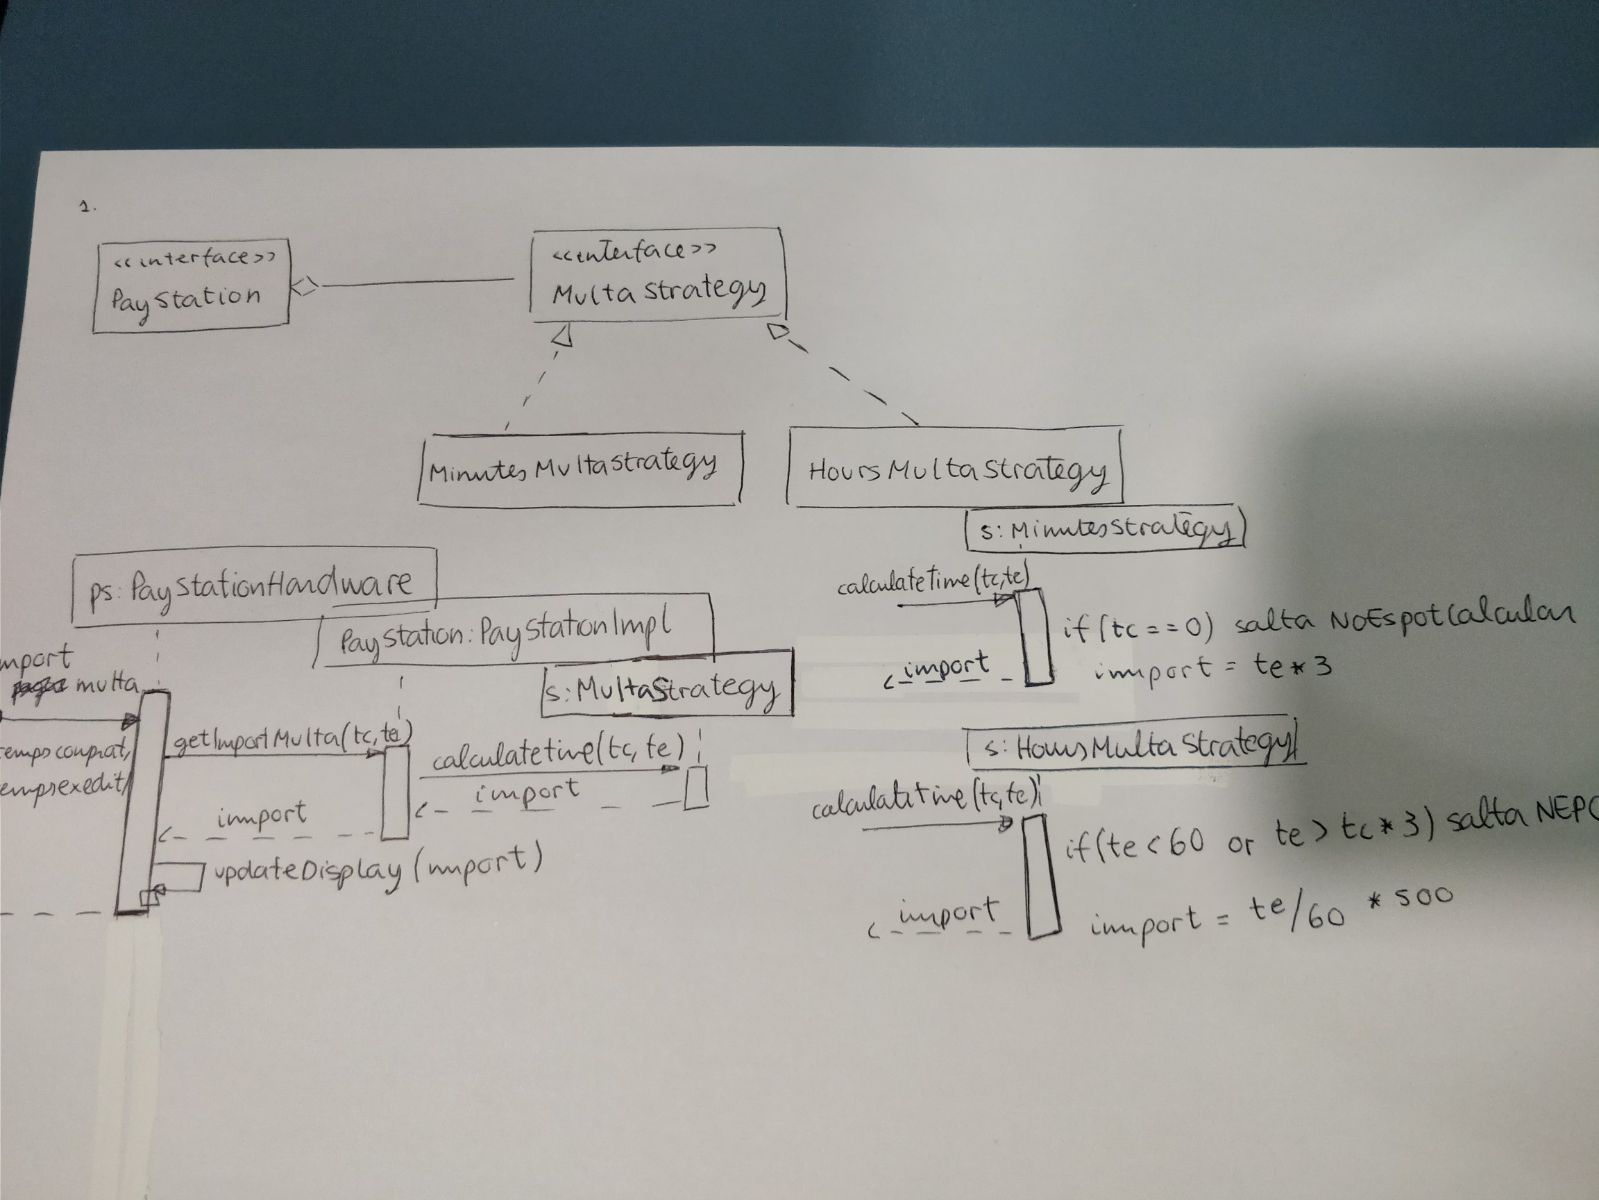 1.
<<interface>>
PayStation
<<interface>>
MultaStrategy
MinutesMultaStrategy
HoursMultaStrategy
ps: PayStationHardware
PayStation: PayStationImpl
s: MultaStrategy
mport
multa
emps comprat,
emps exedit)
getImportMulta(tc,te)
calculatetime(tc, te)
import
import
updateDisplay (import)
s: MinutesStrategy
calculatetime(tc,te)
if (tc == 0) salta NoEspotCalcular
import = te*3
import
s: HoursMultaStrategy
calculatetime(tc,te)
if (te < 60 or te > tc * 3) salta NEPC
import = te/60 * 500
import